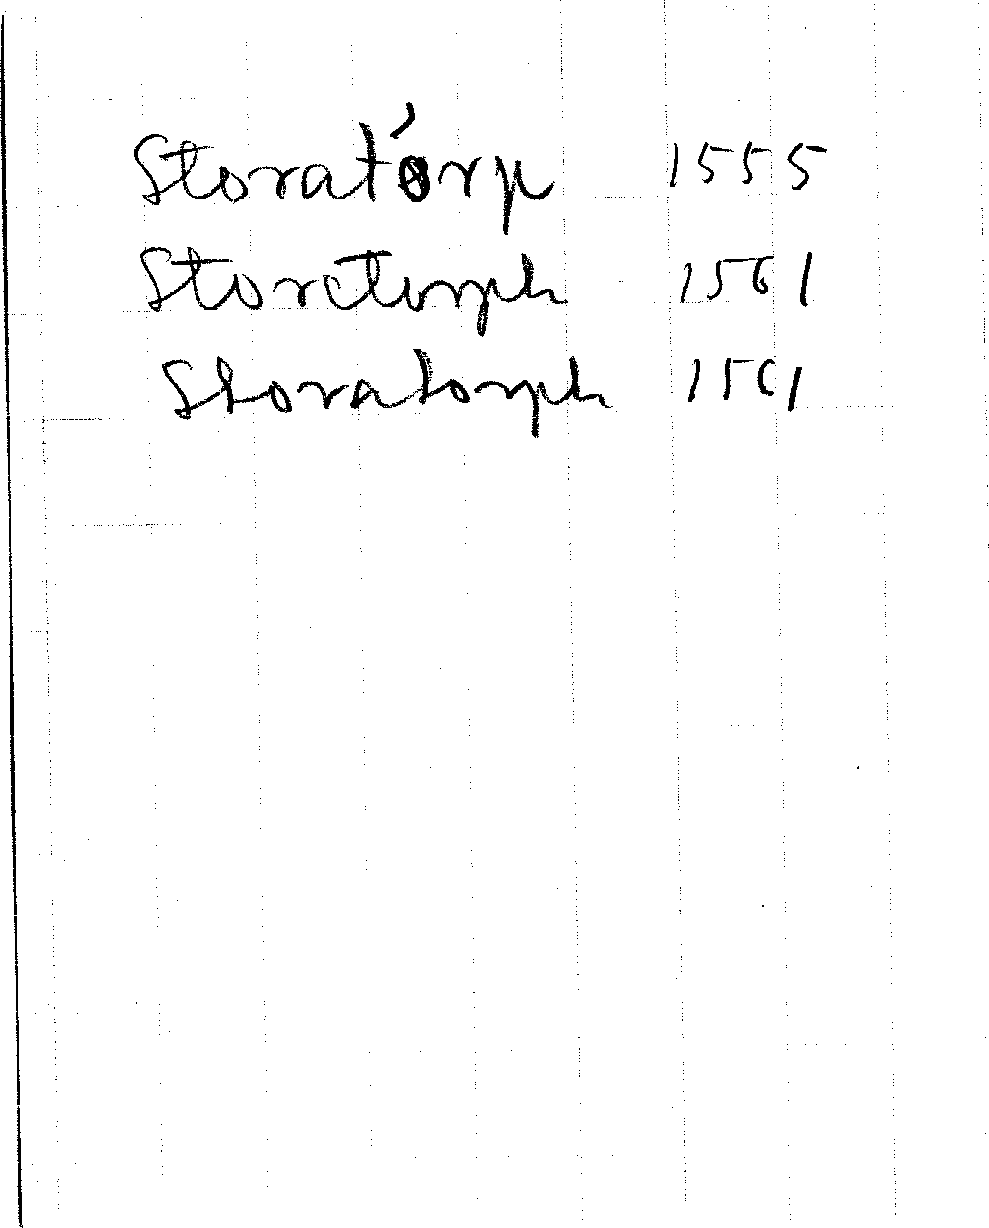 Storatórp 1555
Storetorph 1561
Storatorph 1561